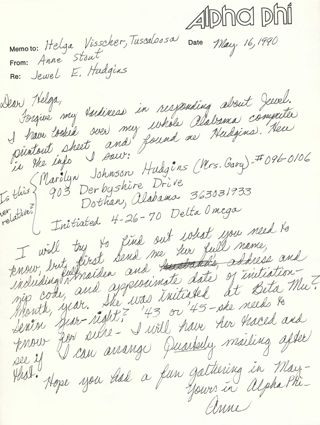 Alpha Phi
Memo to: Helga Visscher, Tuscaloosa Date May 16, 1990
From: Anne Stout
Re: Jewel E. Hudgins
Dear Helga,
Forgive my tardiness in responding about Jewel.
I have looked over my whole Alabama computer
printout sheet and found no Hudgins. Here
is the info I saw:
Is this her relative?
Marilyn Johnson Hudgins (Mrs. Gary)-#096-0106
903 Derbyshire Drive
Dothan, Alabama 363031933
Initiated 4-26-70 Delta Omega
I will try to find out what you need to
know, but first send me her full name,
including maiden and address and
zip code, and approximate date of initiation-
month, year. She was initiated at Beta Mu?
Senior year-right? '43 or '45-she needs to
know for sure- I will have her traced and
see if I can arrange Quarterly mailing after
that.
Hope you had a fun gathering in May-
Yours in Alpha Phi-
Anne